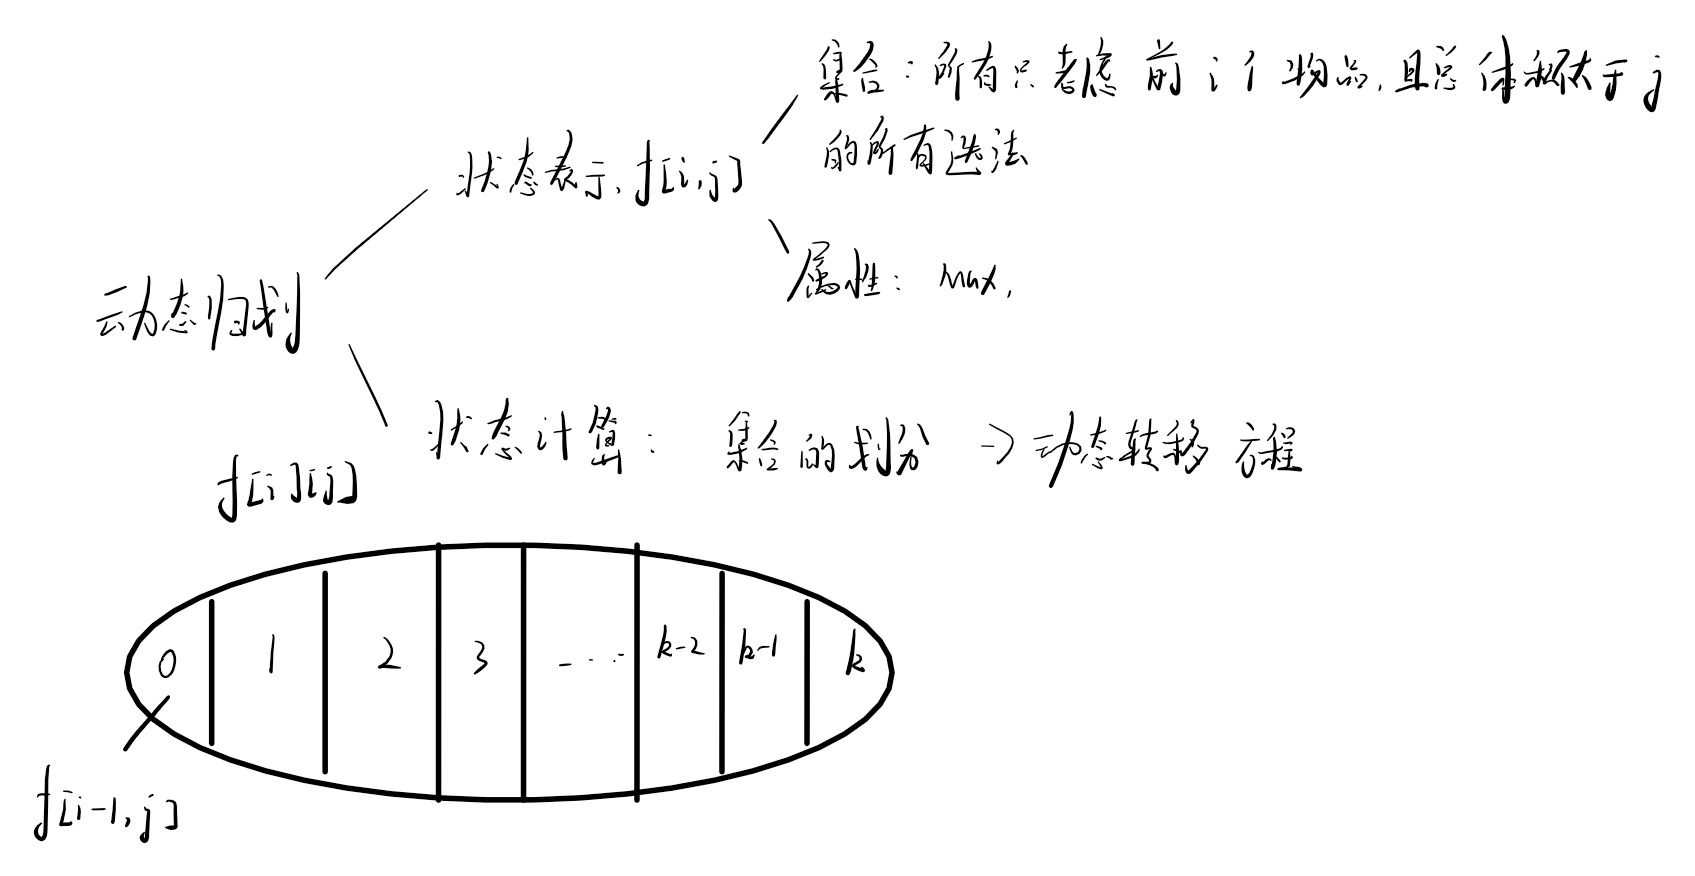 集合：所有只考虑前i个物品，且总体积不大于j
的所有选法
状态表示，f[i,j]
属性：max，
动态归划
状态计算：集合的划分 -> 动态转移方程
f[i][j]
0 1 2 3 ---- k-2 k-1 k
f[i-1,j]